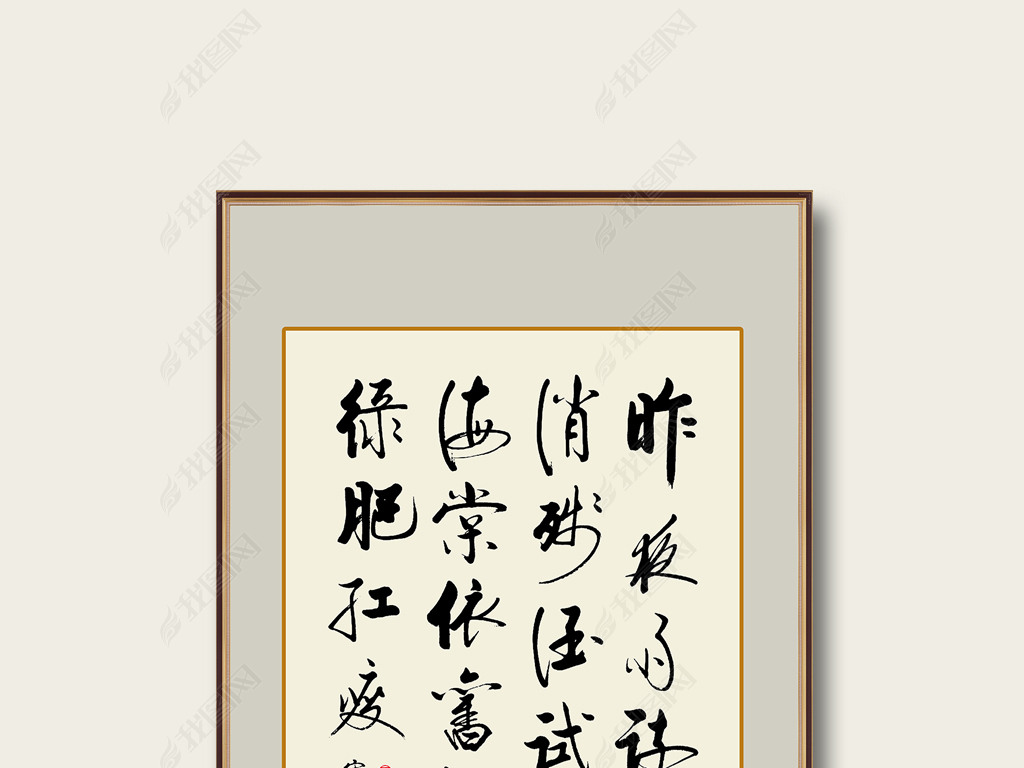 昨夜雨疏
消残酒试
海棠依旧
绿肥红瘦
我图网